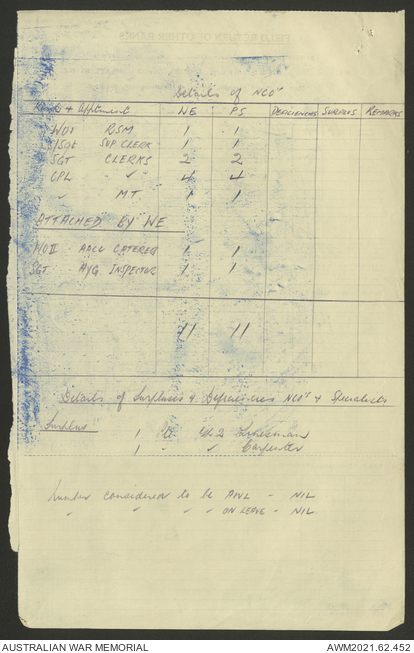 Details of NCOs
Ranks & Apptment WE PS DEFICIENCIES SURPLUS REMARKS
WOI RSM 1 1
S/SGT SUP CLERK 1 1
SGT CLERKS 2 2
CPL " " 4 4
" M.T. 1 1
ATTACHED BY WE
WOII AACC CATERER 1 1
SGT HYG INSPECTOR 1 1
11 11
Details of Surpluses & Deficiencies NCOs & Specialists
Surplus
1 Gp 2 Linesman
1 " " Carpenter
Number considered to be AWL - NIL
" " " " ON LEAVE - NIL.
AUSTRALIAN WAR MEMORIAL AWM2021.62.452